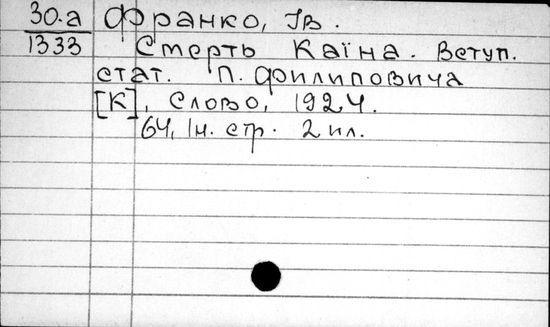 30.а Франко, Ів.
1333 Смерть Каїна. Вступ.
стат. П. Филиповича
[К], Слово, 1924.
64, 1н. стр. 2 ил.